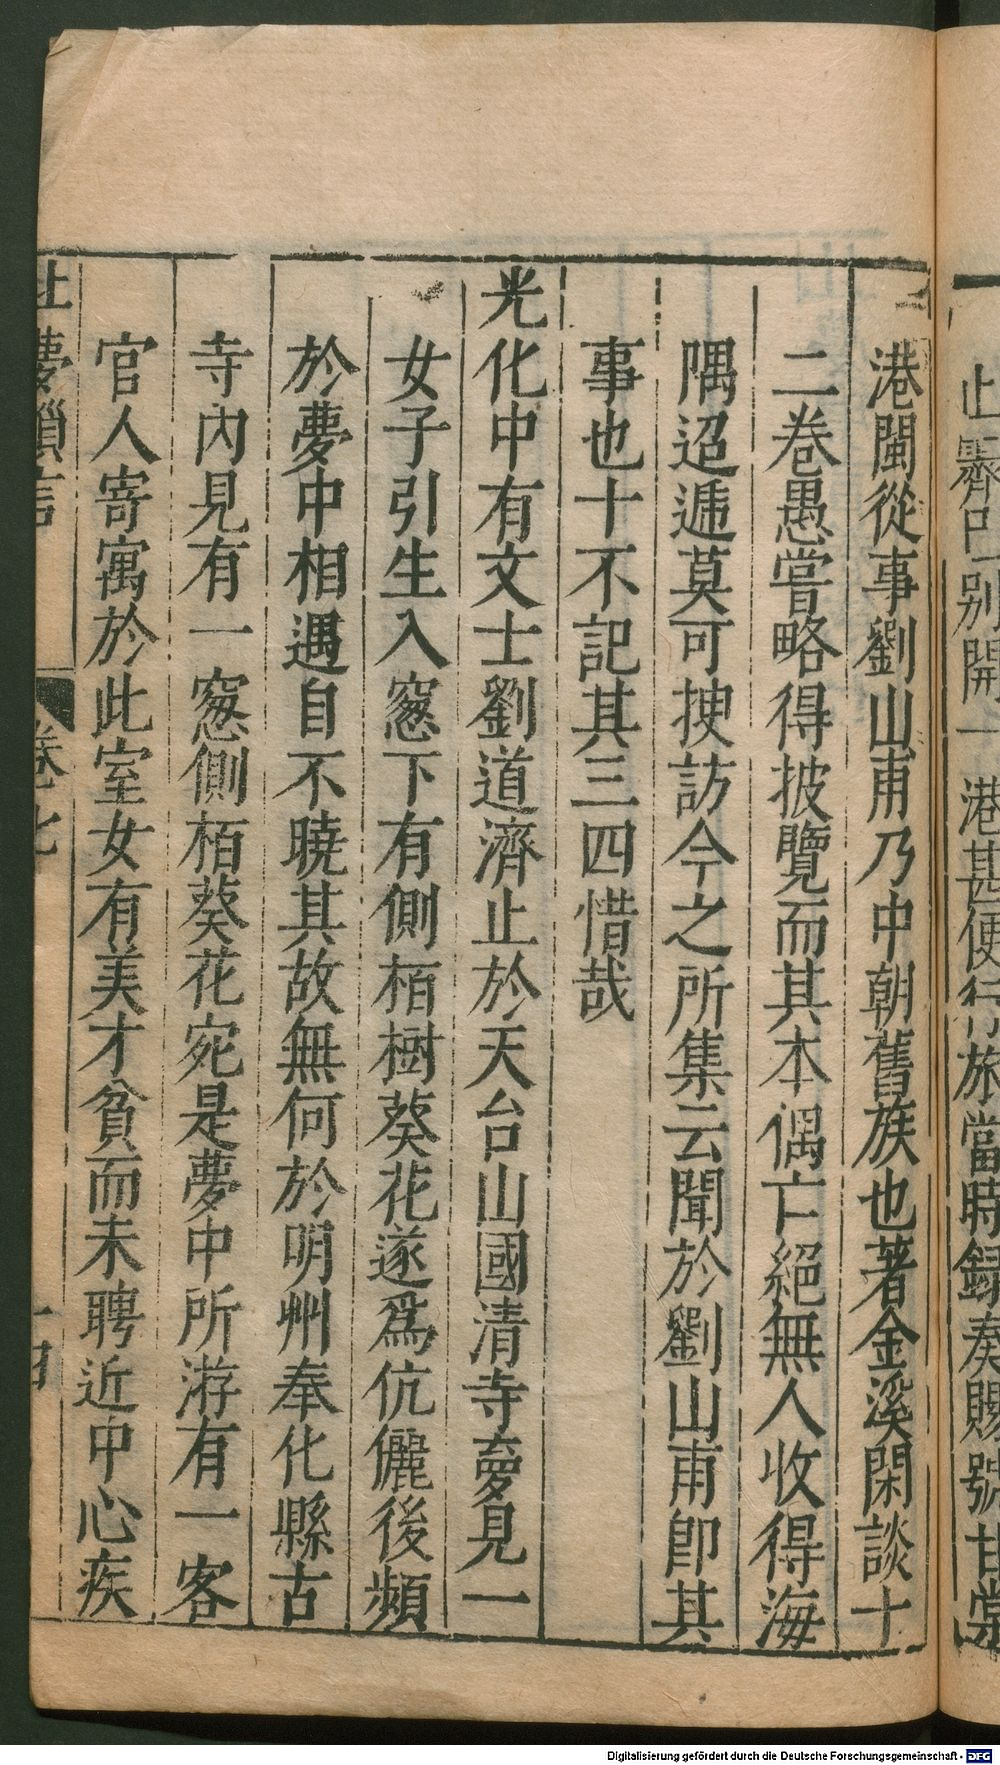 止霹吼別開一港甚便行旅當時録奏賜號甘棠
港閩從事劉山甫乃中朝舊族也著金溪閑談十
二卷愚嘗略得披覽而其本偶亡絕無人收得海
隅迢遞莫可搜訪今之所集云聞於劉山甫卽其
事也十不記其三四惜哉
光化中有文士劉道濟止於天台山國清寺夣見一
女子引生入窻下有側栢樹葵花遂爲伉儷後頻
於夢中相遇自不曉其故無何於明州奉化縣古
寺內見有一窻側栢葵花宛是夢中所游有一客
官人寄寓於此室女有美才貧而未聘近中心疾
北夢瑣言 卷七 十四
Digitalisierung gefördert durch die Deutsche Forschungsgemeinschaft - DFG